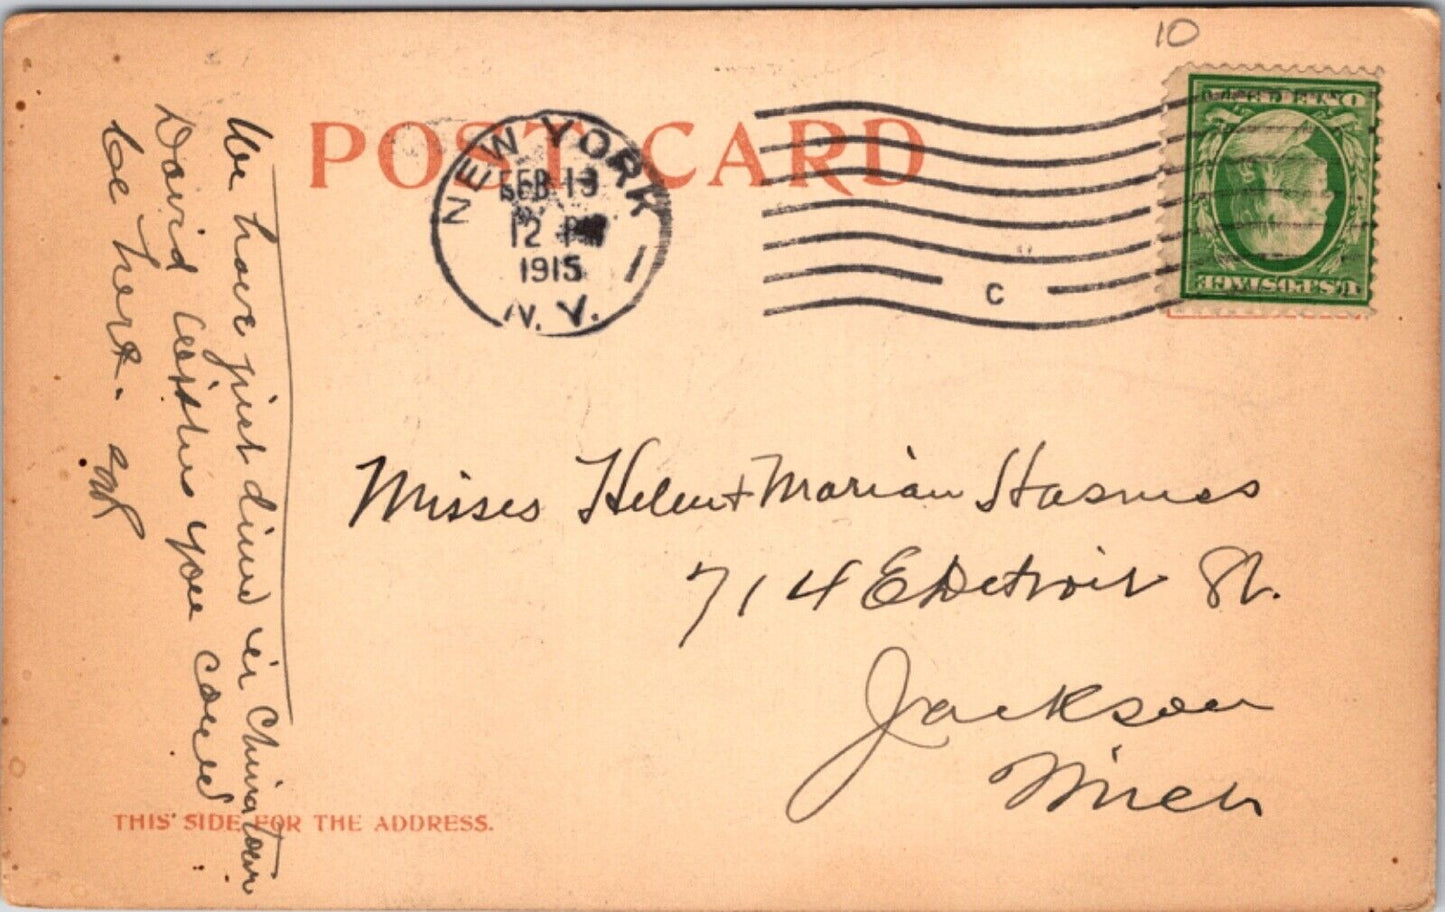 10
POST CARD
NEW YORK
FEB 13
12 PM
1915
N. Y.
C
U.S. POSTAGE
ONE CENT
We have just dined in Chinatown
David wishes you could
be here.
Misses Helen + Marian
714 E Detroit St.
Jackson
Mich
THIS SIDE FOR THE ADDRESS.